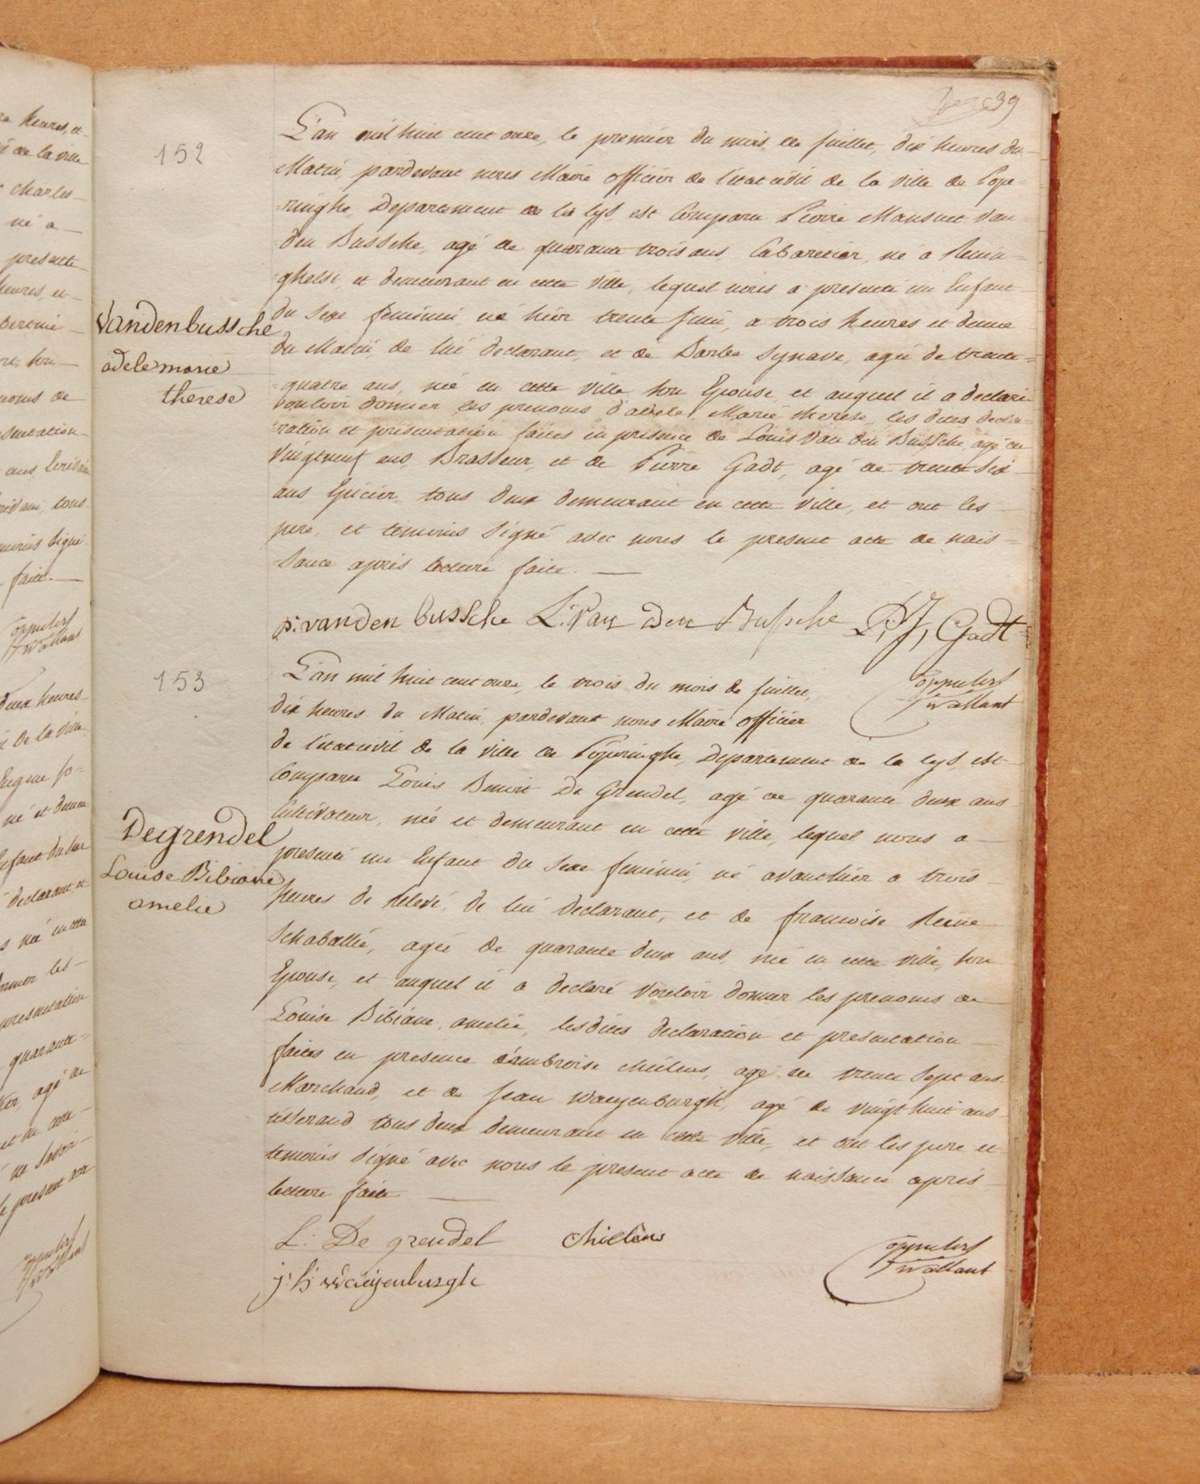 39
152
Vandenbussche
adele marie
therese
L'an mil huit cent onze, le premier du mois de juillet, dix heures du
Matin, pardevant nous Maire officier de l'état civil de la ville de Pope-
ringhe, Departement de la Lys, est Comparu Pierre Mansuet Van
den Bussche, agé de quarante trois ans Cabaretier, né a Renin-
ghelst, et demeurant en cette ville, lequel nous a presenté un Enfant
du Sexe feminin né hier trente juin, a trois heures et demie
du Matin, de lui declarant, et de Barbe Synave, agée de trente-
quatre ans, née en cette ville son Epouse, et auquel il a declaré
vouloir donner les prenoms d'adele Marie therese, les dites decla-
ration et presentation faites en presence de Louis Van den Bussche, agé de
Vingt neuf ans, Brasseur, et de Pierre Gadt, agé de trente six
ans Epicier, tous deux demeurant en cette ville, et ont les
pere, et temoins Signé avec nous le present acte de nais-
sance après lecture faite.
p: vanden bussche L: Van Den Bussche P, J, Gadt
153
Degrendel
Louise Bibiane
amelie
L'an mil huit cent onze, le trois du mois de juillet,
dix heures du Matin, pardevant nous Maire officier
de l'état civil de la ville de Poperinghe, Departement de la Lys, est
Comparu Louis Benoit De Grendel, agé de quarante deux ans
Cultivateur, né et demeurant en cette ville, lequel nous a
presenté un Enfant du Sexe feminin, né avanthier a trois
heures de relevé, de lui declarant, et de francoise Reine
Schaballié, agée de quarante deux ans, née en cette ville, son
Epouse, et auquel il a declaré vouloir donner les prenoms de
Louise Bibiane, amelie, lesdites declaration et presentation
faites en presence d'ambroise Chielens, agé de trente sept ans
Marchand, et de Jean Waeyenburgh, agé de vingt huit ans
tisserand tous deux demeurant en cette ville, et ont les pere et
temoins Signé avec nous le present acte de naissance après
lecture faite
L: De grendel Chielens
j: b: waeyenburgh